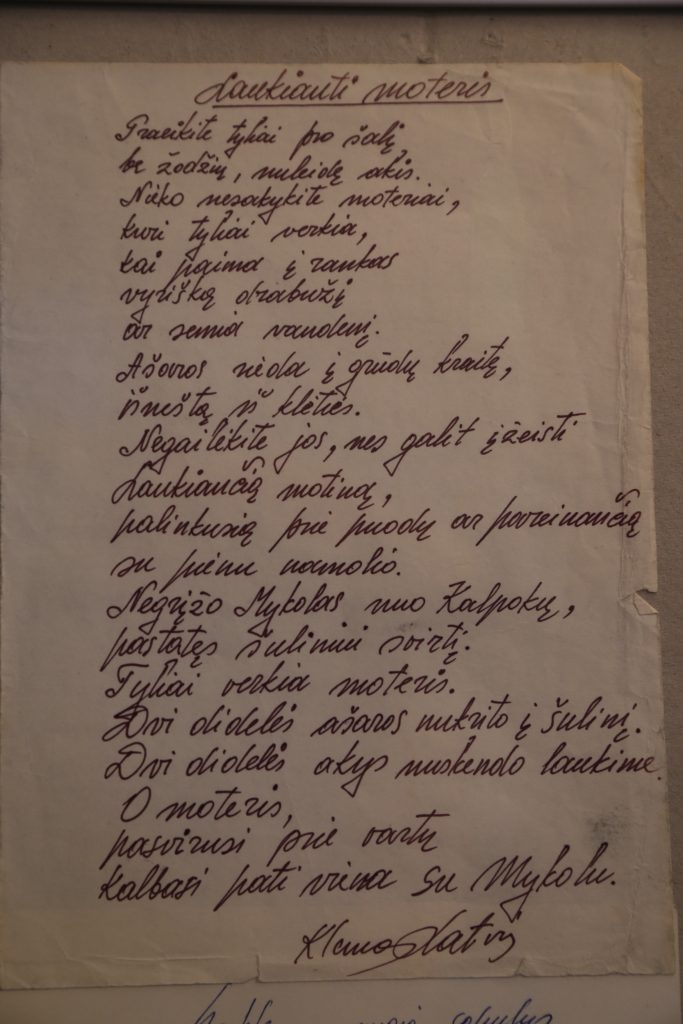 Laukianti moteris
Praeikite tyliai pro šalį,
be žodžių, nuleidę akis.
Nieko nesakykite moteriai,
kuri tyliai verkia,
kai paima į rankas
vyrišką drabužį
ar semia vandenį.
Ašaros rieda į grūdų kraitę,
išneštą iš klėties.
Negailėkite jos, nes galit įžeisti
Laukiančią motiną,
palinkusią prie puodų ar pareinančią
su pienu namolio.
Negrįžo Mykolas nuo Kalpokų,
pastatęs šuliniui svirtį.
Tyliai verkia moteris.
Dvi didelės ašaros nukrito į šulinį.
Dvi didelės akys nuskendo laukime.
O moteris,
pasvirusi prie vartų
kalbasi pati viena su Mykolu.